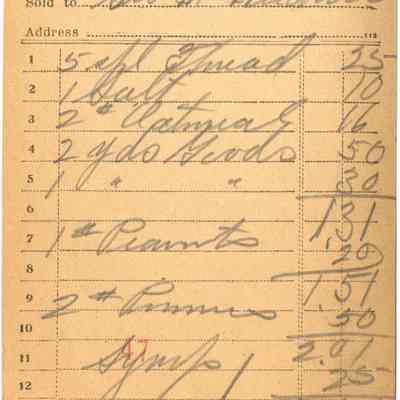 Sold to
Address
1 5 spl Thread 25
2 1 Salt 10
3 2# Oatmeal 16
4 2 yds Goods 50
5 1 " " 30
6 1.31
7 1# Peanuts .20
8 1.51
9 2# Prunes .50
10 2.01
11 Syrup 25
12